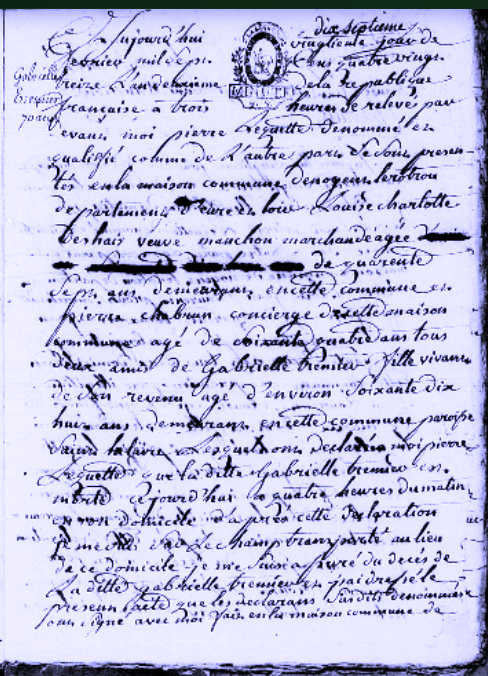 dix septieme
Aujourd'hui vingtieme jour de
fevrier mil sept Cens quatre vingt
treize L'an deuxieme de la republique
Gabrielle
française a trois heures de relevé par
devant moi pierre Lequette denommé et
qualiffié comme de L'autre part Se Sont presen-
tés en la maison commune de nogent le rotrou
departement d'eure et loir Louise charlotte
Deshais veuve manchon marchande agée
de quarente
Sept ans demeurant en cette commune et
pierre chabrun concierge de cette maison
commune agé de Soixante quatre ans tous
deux amis de Gabrielle fille vivante
de Son revenu agé d'environ Soixante dix
huit ans demeurant en cette commune paroisse
Saint hilaire Lesquels mont declaré a moi pierre
Lequette que la ditte Gabrielle est
morte cejourd'hui a quatre heures du matin
en son domicile d'apres cette declaration
je me Suis Sur Le champ transporté au lieu
de ce domicile je me Suis assuré du decés de
La ditte gabrielle et j'ai dressé le
present acte que les declarants Susdits denommés
ont Signé avec moi fait en la maison commune de